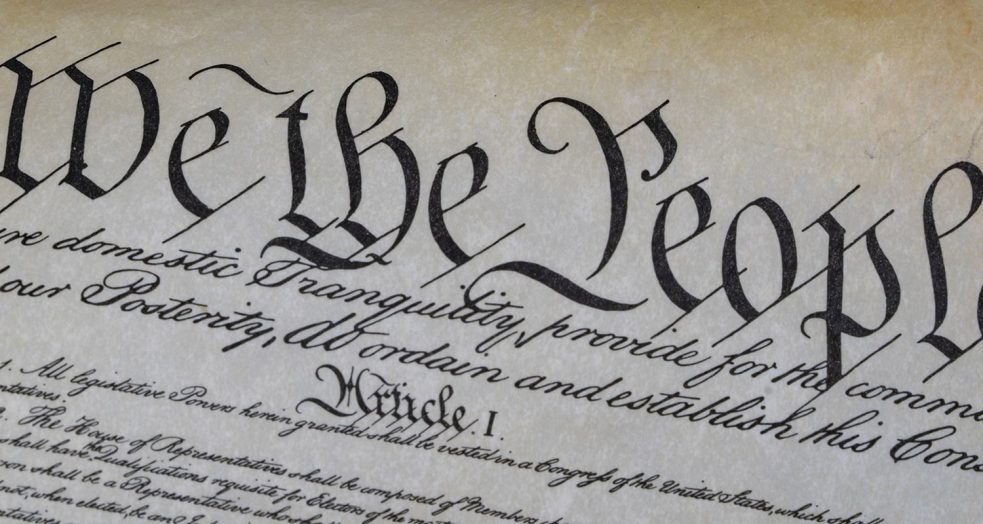 We the People
ure domestic Tranquility, provide for the common
our Posterity, do ordain and establish this Cons
Article I.
1. All legislative Powers herein granted shall be vested in a Congress of the United States, which shall
ntatives.
The House of Representatives shall be composed of Members
shall have the Qualifications requisite for Electors of the most
shall be a Representative who shall
not, when elected, be an